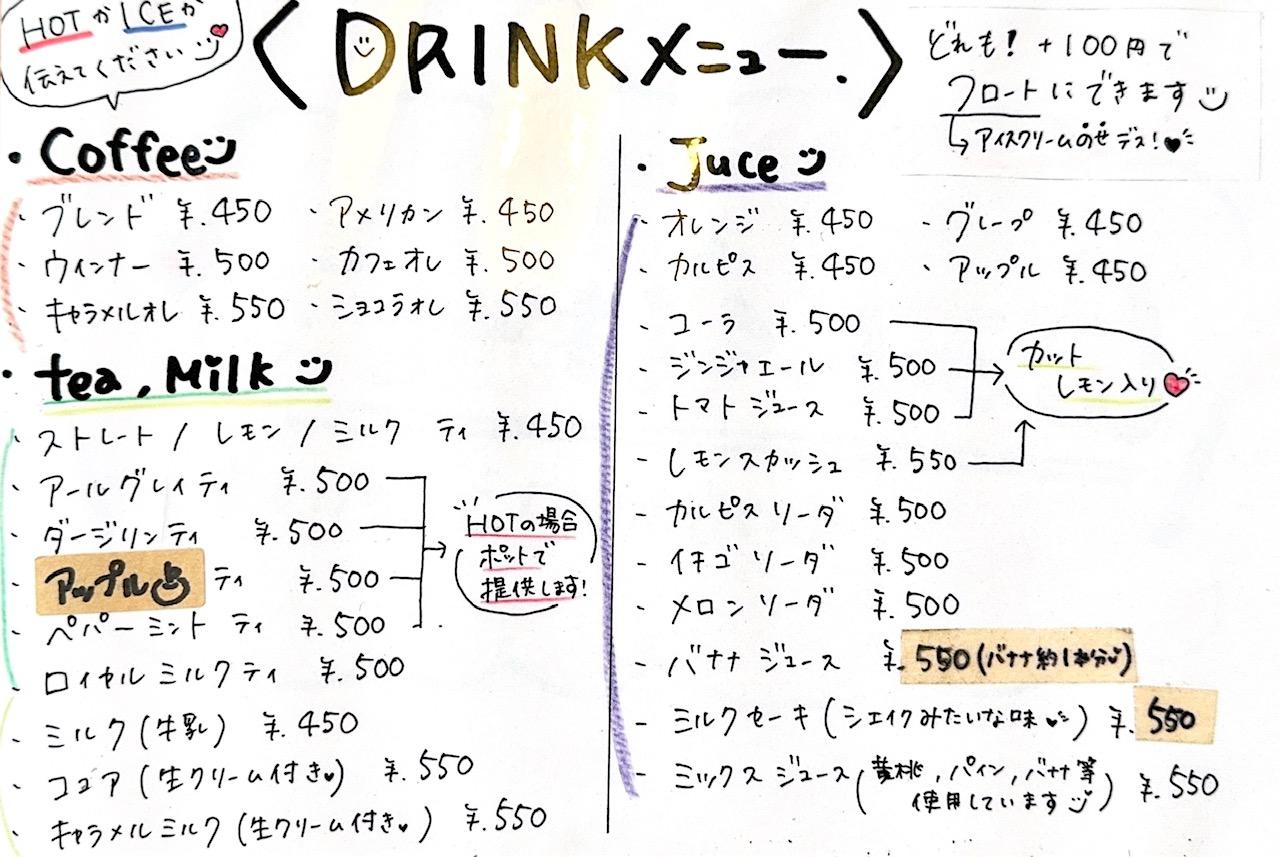 HOTかICEか
伝えてください
〈DRINKメニュー.〉
どれも！+100円で
フロートにできます
↳アイスクリームのせデス！♥
・Coffee
・ブレンド ¥.450 ・アメリカン ¥.450
・ウィンナー ¥.500 ・カフェオレ ¥.500
・キャラメルオレ ¥.550 ・ショコラオレ ¥.550
・tea, Milk
・ストレート / レモン / ミルク ティ ¥.450
・アールグレイティ ¥.500
・ダージリンティ ¥.500
・アップルティ ¥.500
・ペパーミント ティ ¥.500
HOTの場合
ポットで
提供します！
・ロイヤルミルクティ ¥.500
・ミルク(牛乳) ¥.450
・ココア(生クリーム付き♥) ¥.550
・キャラメルミルク(生クリーム付き♥) ¥.550
・Juce
・オレンジ ¥.450 ・グレープ ¥.450
・カルピス ¥.450 ・アップル ¥.450
・コーラ ¥.500
・ジンジャエール ¥.500
・トマトジュース ¥.500
・レモンスカッシュ ¥.550
カット
レモン入り
・カルピスソーダ ¥.500
・イチゴソーダ ¥.500
・メロンソーダ ¥.500
・バナナジュース ¥.550(バナナ約1本分)
・ミルクセーキ(シェイクみたいな味♥) ¥.550
・ミックスジュース(黄桃,パイン,バナナ等 ¥.550
使用しています)